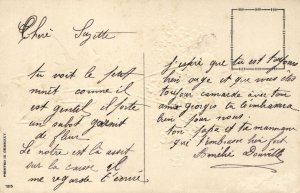 Chere Suzette
tu voit le petit
minet comme il
est gentil il porte
un sabot garnit
de fleur
Le notre est la assit
sur la caisse il
me regarde t'écrire
j'espère que tu est toujours
bien sage et que vous etes
toujour camarde avec ton
ami georgis tu l'embrassera
bien pour nous
ton papa et ta maman
qui t'embrasse bien fort
Amélie